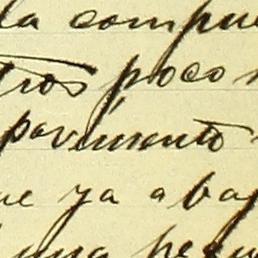 la compue
tros poco
pavimento
ue ya abaj
una pequ